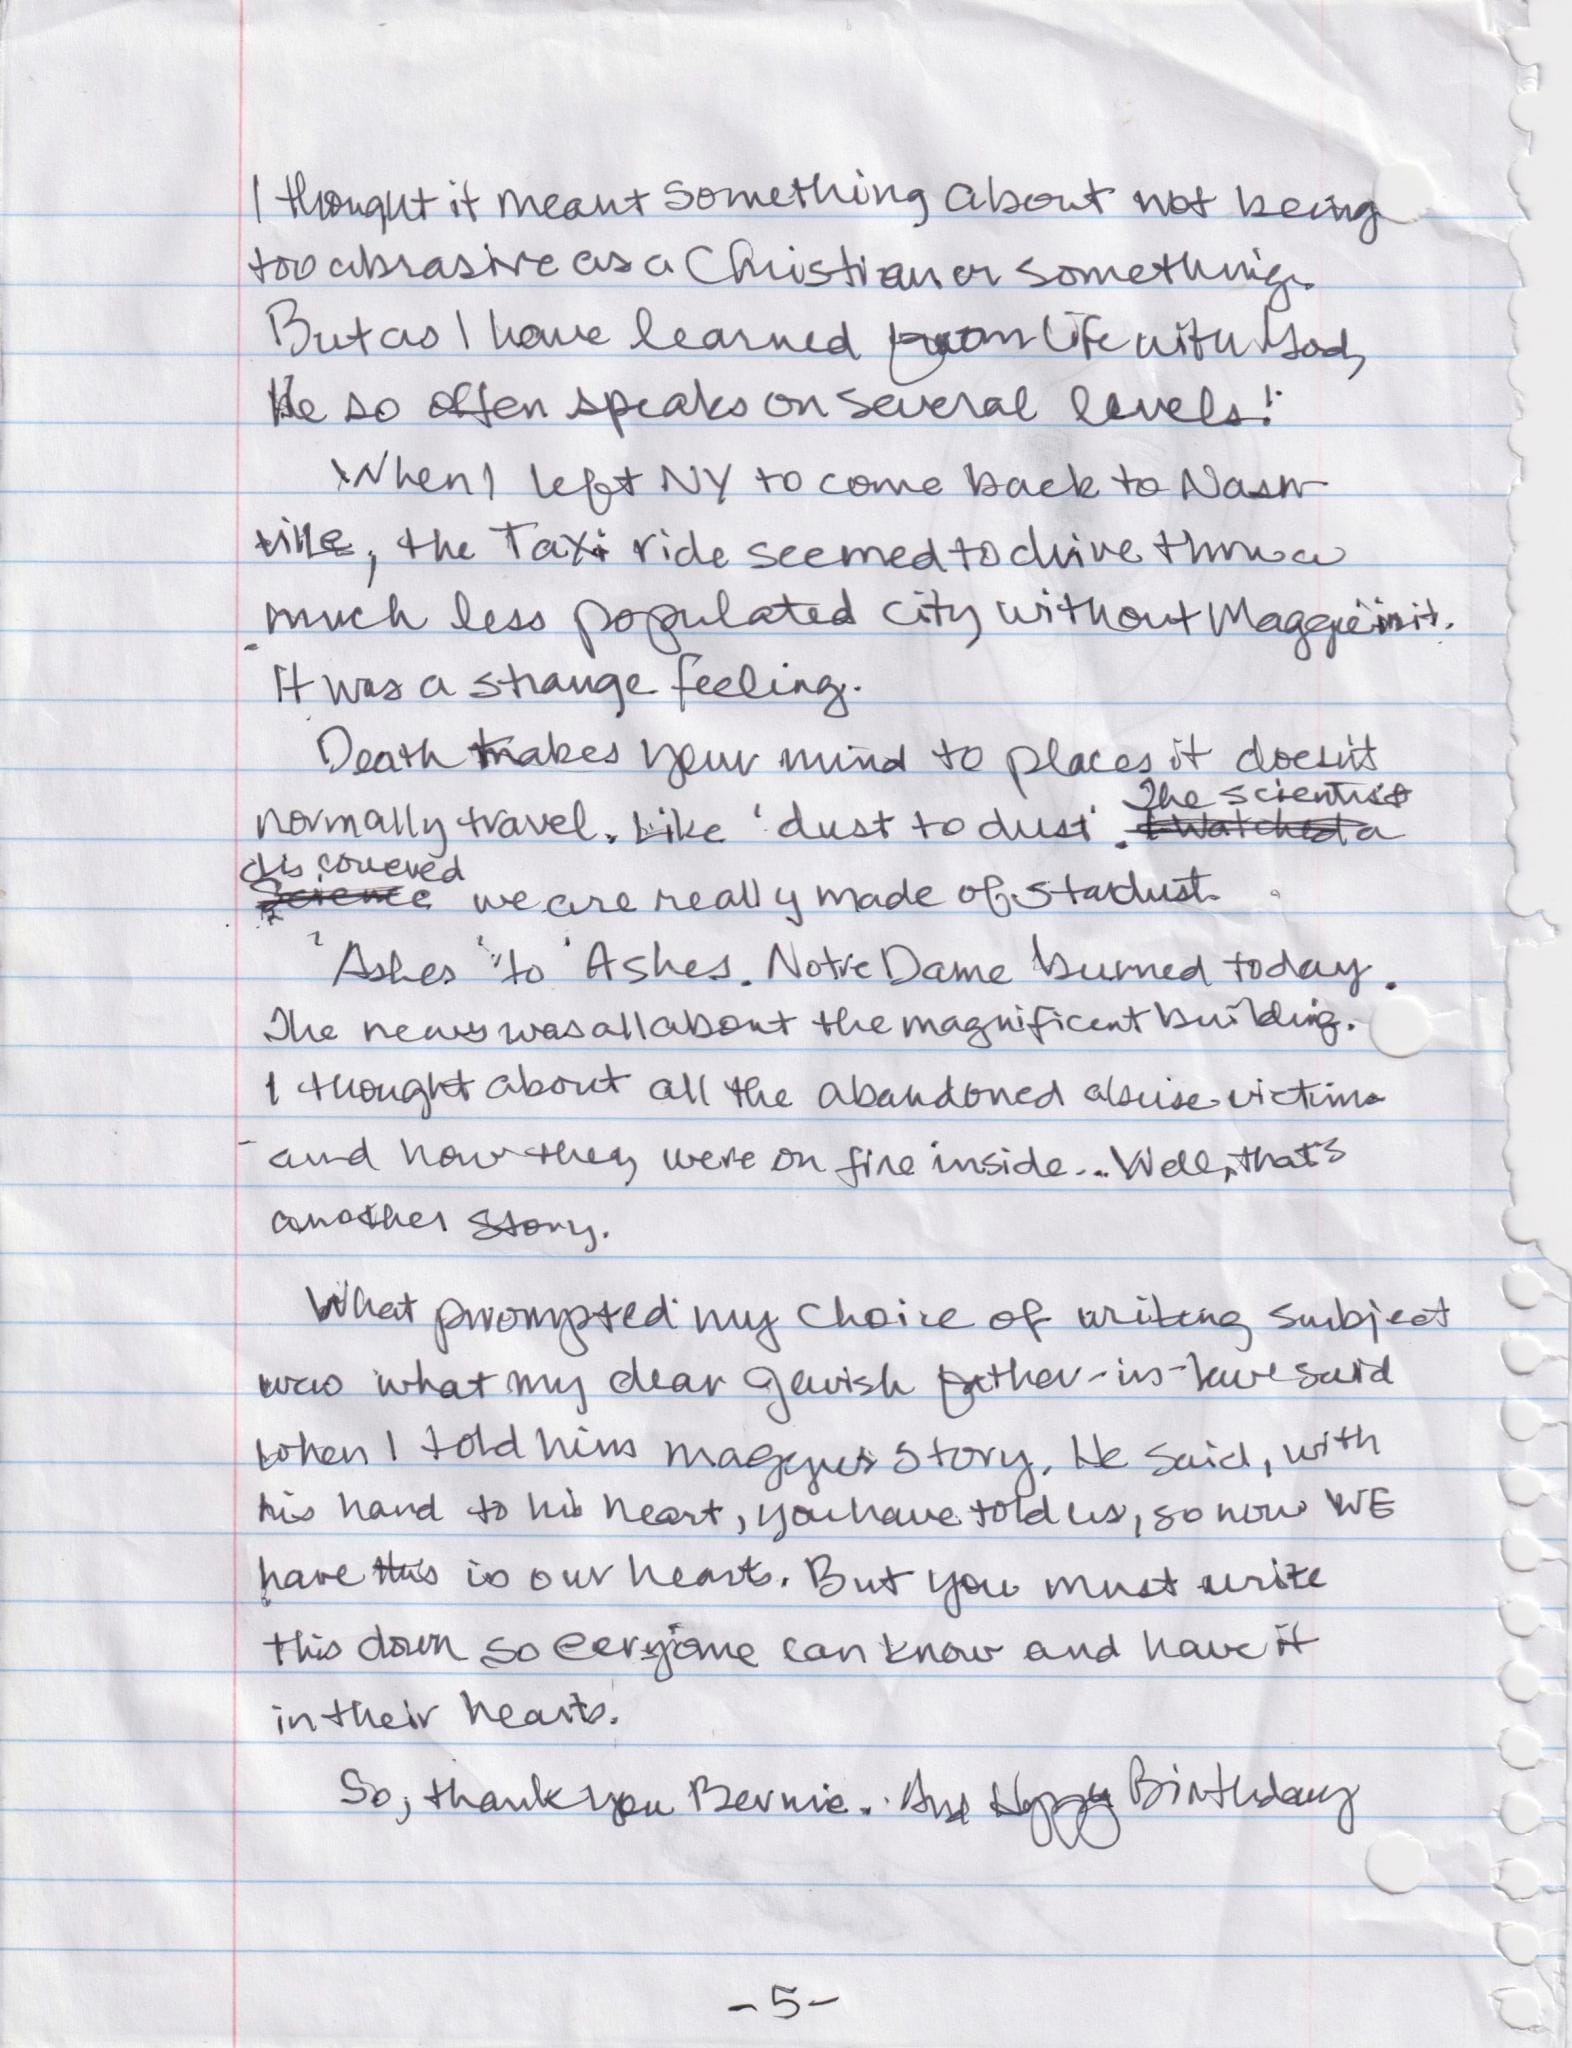 I thought it meant something about not being
too abrasive as a Christian or something.
But as I have learned from life with God,
He so often speaks on several levels!
When I left NY to come back to Nash-
ville, the Taxi ride seemed to drive thru a
much less populated city without Maggie in it.
It was a strange feeling.
Death takes your mind to places it doesn't
normally travel. Like 'dust to dust'. The scientist
discovered we are really made of stardust.
'Ashes' to 'Ashes. Notre Dame burned today.
The news was all about the magnificent building.
I thought about all the abandoned abuse victims
and how they were on fire inside... Well, that's
another story.
What prompted my choice of writing subject
was what my dear Jewish father-in-law said
when I told him Maggie's story. He said, with
his hand to his heart, you have told us, so now WE
have this in our hearts. But you must write
this down so everyone can know and have it
in their hearts.
So, thank you Bernie. And Happy Birthday
-5-